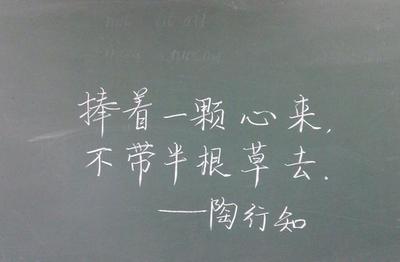 捧着一颗心来,
不带半根草去.
——陶行知